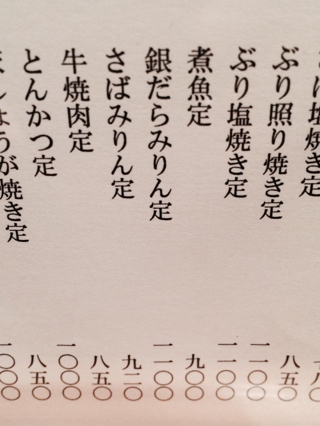 塩焼き定
ぶり照り焼き定
ぶり塩焼き定
煮魚定
銀だらみりん定
さばみりん定
牛焼肉定
とんかつ定
しょうが焼き定
八五〇
一一〇〇
一一〇〇
九〇〇
一一〇〇
九二〇
八五〇
一〇〇〇
八五〇
一〇〇〇